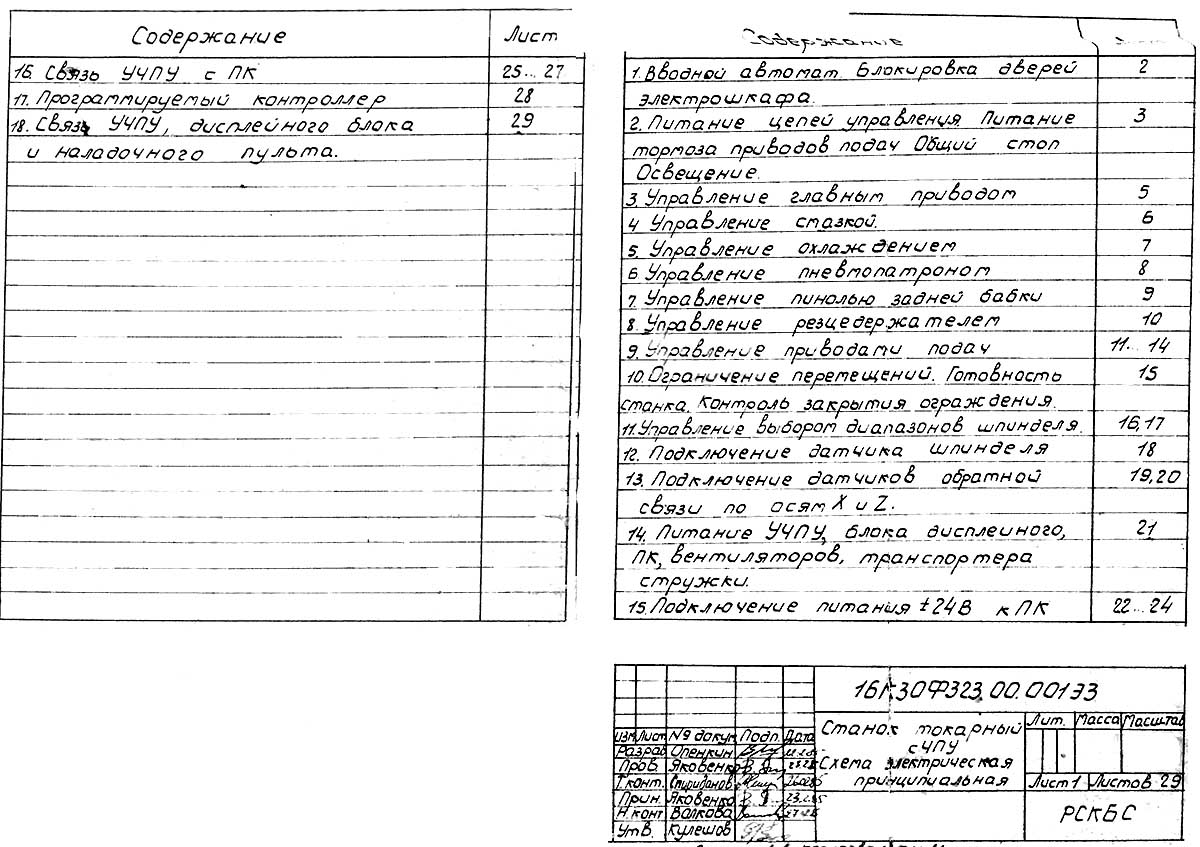 Содержание Лист
16. Связь УЧПУ с ПК 25...27
17. Программируемый контроллер 28
18. Связь УЧПУ, дисплейного блока 29
и наладочного пульта.
Содержание
1. Вводной автомат. Блокировка дверей 2
электрошкафа.
2. Питание цепей управления Питание 3
тормоза приводов подач Общий стоп
Освещение.
3. Управление главным приводом 5
4 Управление смазкой. 6
5. Управление охлаждением 7
6 Управление пневмопатроном 8
7. Управление пинолью задней бабки 9
8. Управление резцедержателем 10
9. Управление приводами подач 11...14
10. Ограничение перемещений. Готовность 15
станка. Контроль закрытия ограждения.
11. Управление выбором диапазонов шпинделя. 16,17
12. Подключение датчика шпинделя 18
13. Подключение датчиков обратной 19,20
связи по осям X и Z.
14. Питание УЧПУ, блока дисплейного, 21
ПК, вентиляторов, транспортера
стружки.
15. Подключение питания ±24В к ПК 22...24
16К30Ф323.00.001Э3
Станок токарный
с ЧПУ
Схема электрическая
принципиальная
Лит. Масса Масштаб
Лист 1 Листов 29
РСКБС
Изм Лист № докум Подп. Дата
Разраб Опенкин
Пров. Яковенко
Т.конт. Спиридонов
Прин. Яковенко
Н.конт Валкова
Утв. Кулешов